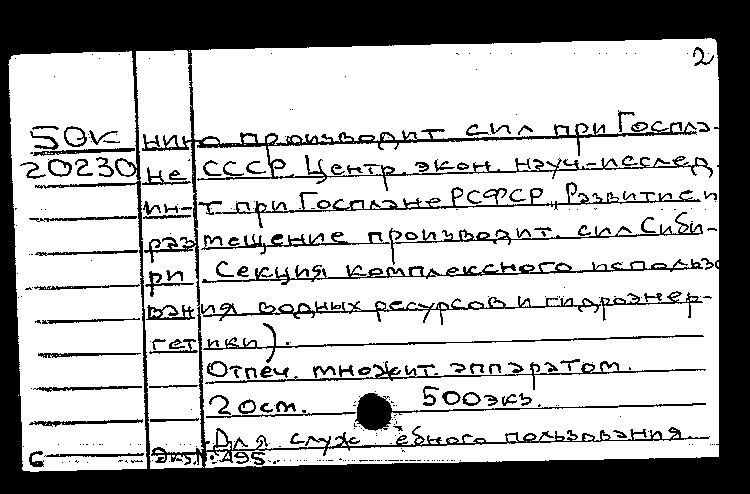 2
50К нию производит сил при Госпла-
20230 не СССР. Центр. экон. науч.-исслед.
ин-т при Госплане РСФСР „Развитие и
размещение производит. сил Сиби-
ри. Секция комплексного использо
вания водных ресурсов и гидроэнер-
гетики).
Отпеч. множит. аппаратом.
20ст. 500экз.
Для служебного пользования
6 Экз.№495.